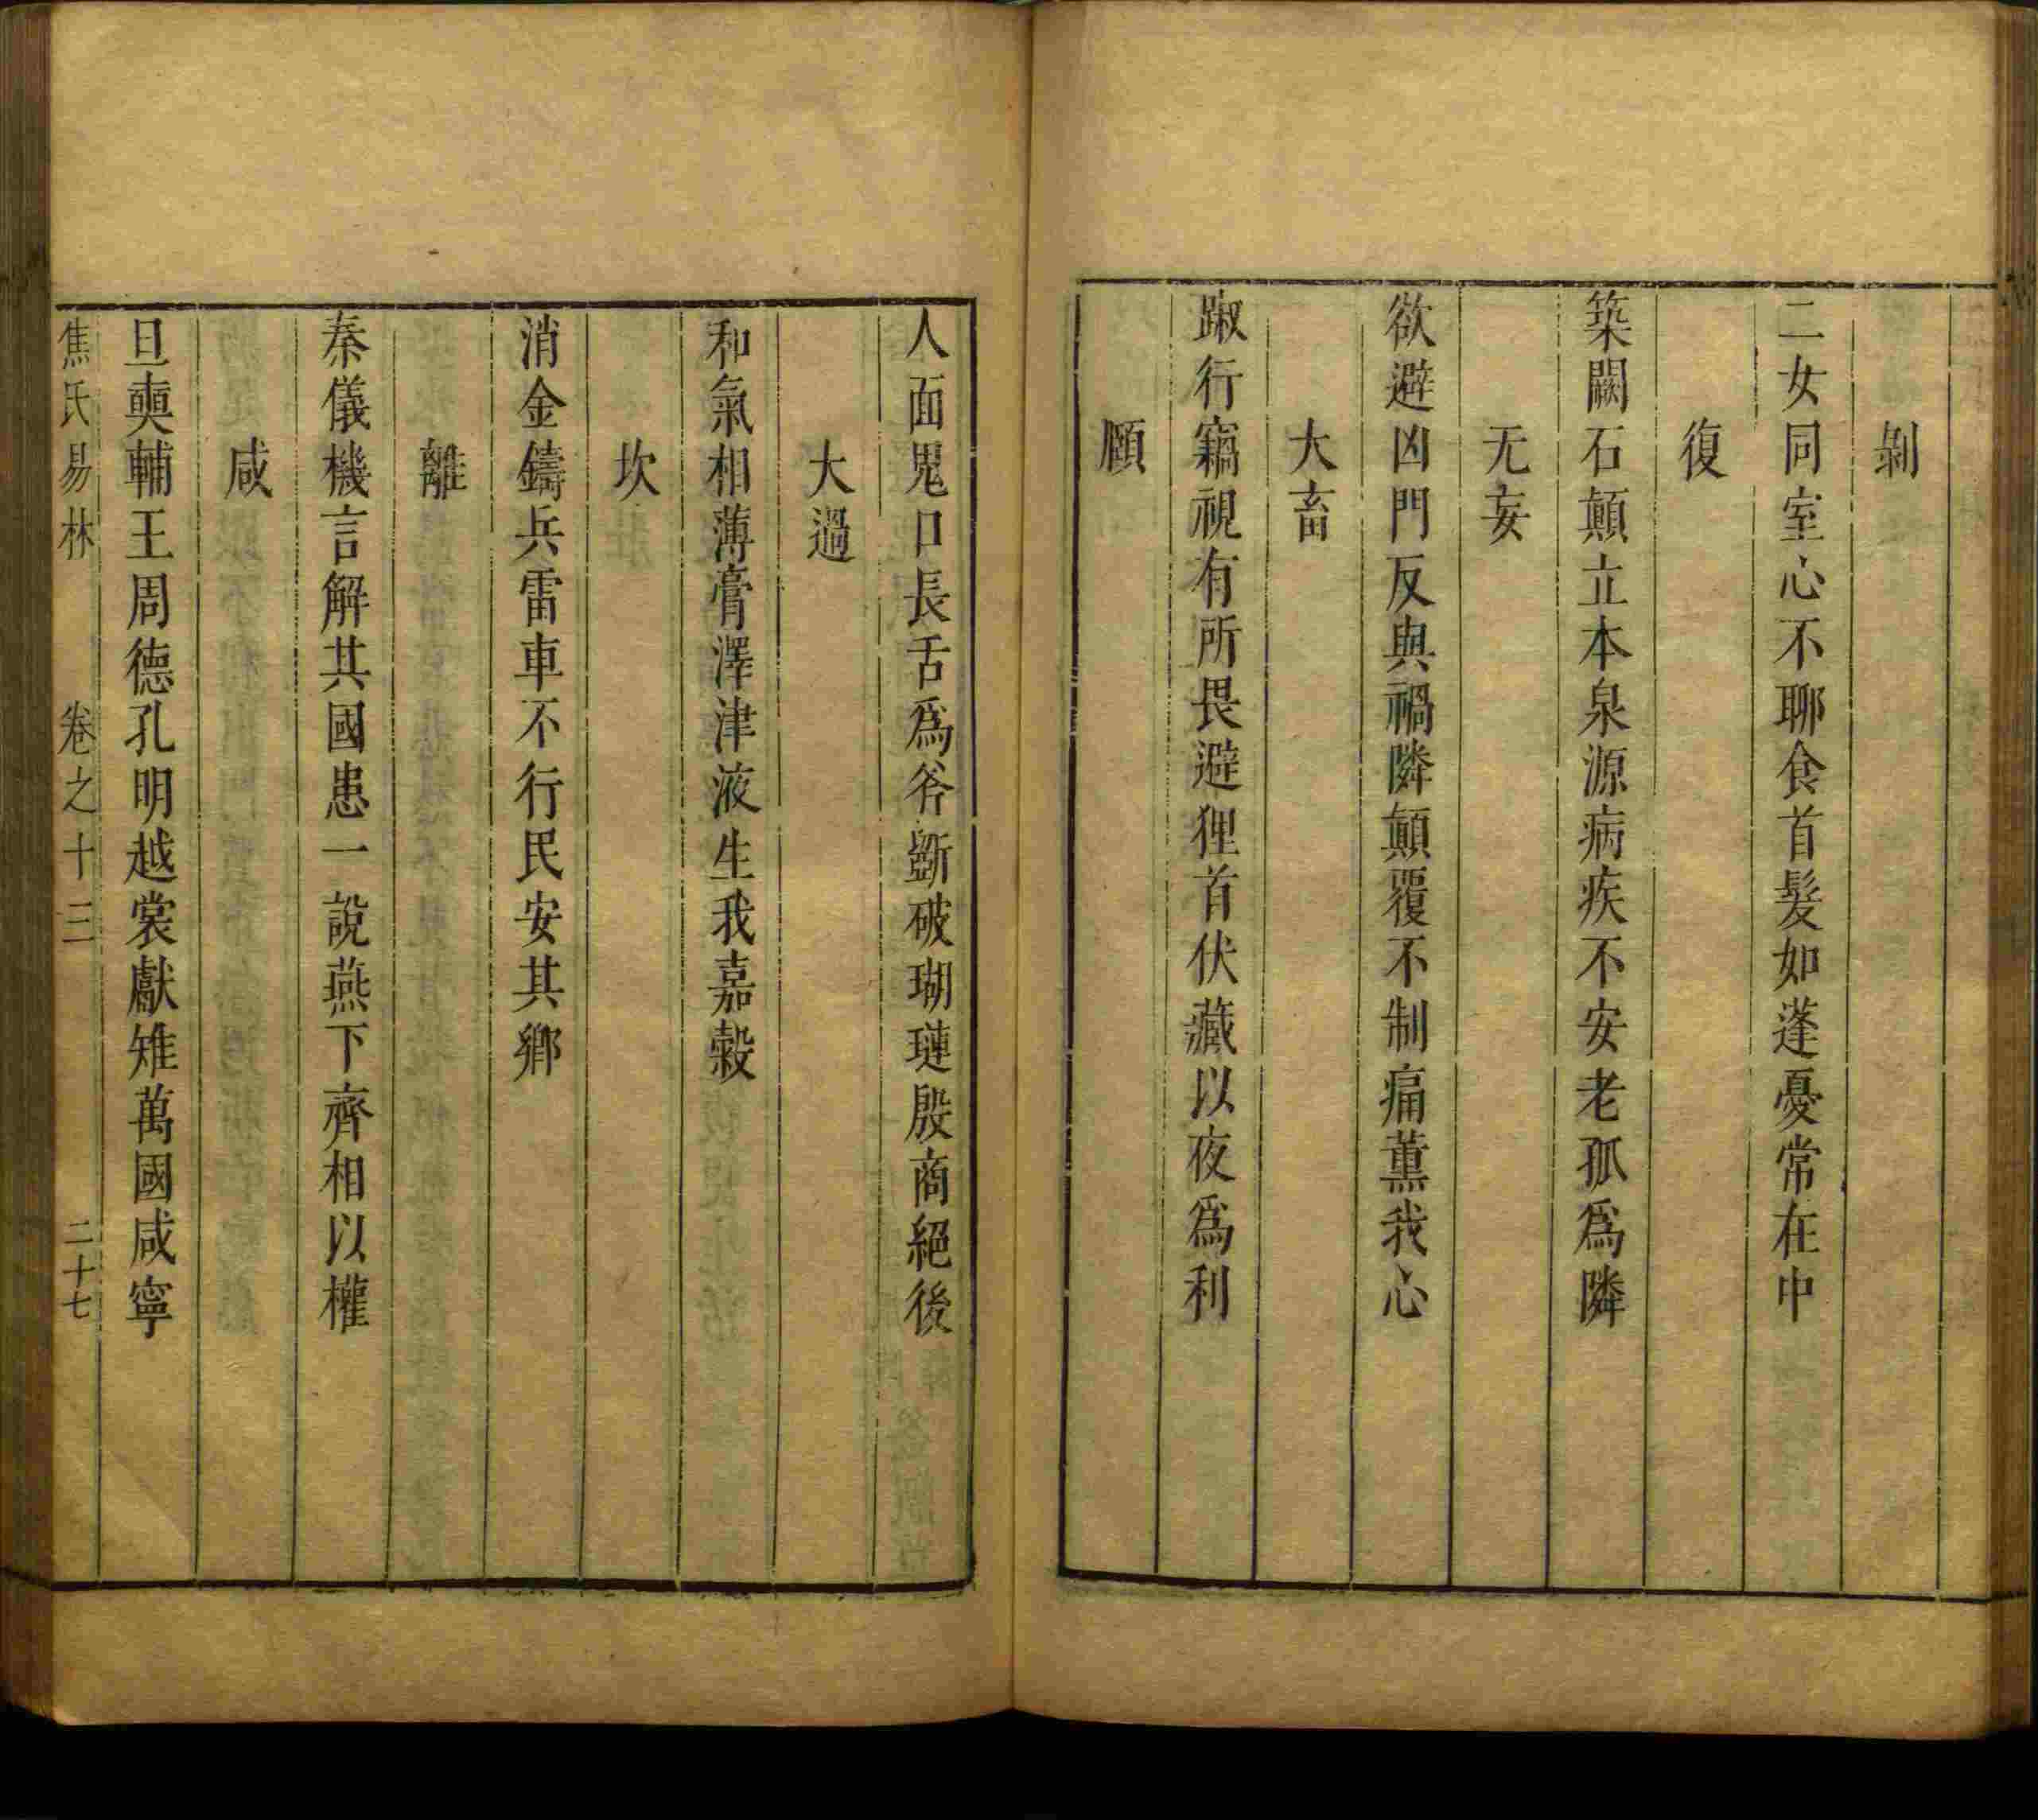 剝
二女同室心不聊食首髮如蓬憂常在中
復
築闕石顛立本泉源病疾不安老孤爲隣
无妄
欲避凶門反與禍隣顛覆不制痛薰我心
大畜
踧行竊視有所畏避狸首伏藏以夜爲利
頤
人面鬼口長舌爲斧斵破瑚璉殷商絕後
大過
和氣相薄膏澤津液生我嘉穀
坎
消金鑄兵雷車不行民安其鄉
離
秦儀機言解其國患一說燕下齊相以權
咸
旦奭輔王周德孔明越裳獻雉萬國咸寧
焦氏易林 卷之十三 二十七